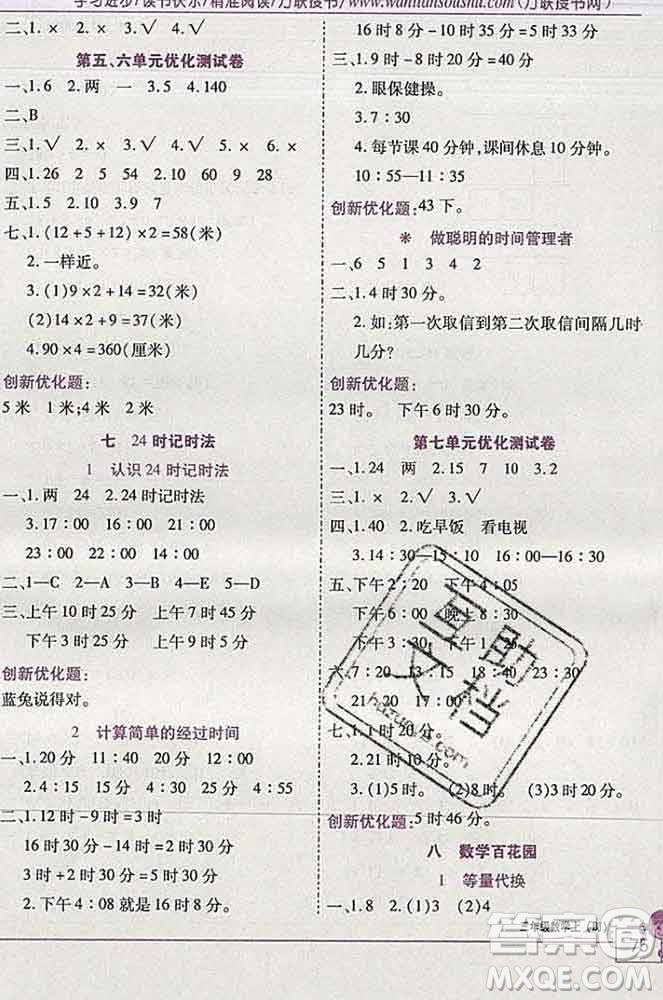 学习进步/读书快乐/精准阅读/万联搜书/www.wanliansoushu.com(万联搜书网)
二、1.× 2.√ 3.× 4.√
第五、六单元优化测试卷
一、1.6 2.两 一 3.5 4.140
二、B
三、1.√ 2.× 3.√ 4.√ 5.×
四、1.26 2 5 54 2.10 60 9 28
五、1.5 2.10 3.9 7
七、1.(12+5+12)×2=58(米)
2.一样近。
3.(1)9×2+14=32(米)
(2)14×2+9=37(米)
4.90×4=360(厘米)
创新优化题:
5 米 1 米;4 米 2 米
七 24 时记时法
1 认识 24 时记时法
一、1.两 24 2.24 时记时法
3.17:00 21:00 19:00
23:00 22:00 20:00
二、1—C 2—D 3—A 4—E 5—B
三、上午 10 时 25 分 上午 7 时 45 分
下午 3 时 25 分 下午 9 时 10 分
创新优化题:
蓝兔说得对。
2 计算简单的经过时间
一、1.20分 2.9:20 12:00
2.4:15 4:25 4:35 4:55
二、1.12 时-9 时=3 时
16 时 30 分-16 时=30 分
3 时+30 分=3 时 30 分
2.下午 4:08=16 时 8 分
16 时 8 分-15 时 50 分=18 分
三、1.(1)× (2)× (3)√ (4)×
2.眼保健操。
3.7:30
4.每节课 40 分钟,课间休息 10 分钟。
10:55—11:35
创新优化题:43 下。
※ 做聪明的时间管理者
一、6 5 1 3 4 2
二、1.4 时 30 分。
2.如:第一次取信到第二次取信间隔几时
几分?
创新优化题:
23 时。 下午 6 时 30 分。
第七单元优化测试卷
一、1.24 两 2.15 7 10 3.2
三、1.× 2.√ 3.√ 4.√
四、1.40 2.吃早饭 看电视
3.14:30—15:10
五、下午 2:20 下午 4:05
下午 6:00 晚上 8:30
下午 9:00 下午 1:25
六、7:20 13:15 18:20 23:30
21:20 10:
七、1.1 时 20 分。
2.21 时 10 分。
3.(1)5 时。 (2)8 时。 (3)2 时。
创新优化题:5 时 46 分。
八 数学百花园
1 等量代换
一、1.8 2.(1)3 (2)4
三年级数学上(BJ)
75
互助
文档
huzuwya.com
答案圈
MXQE.COM